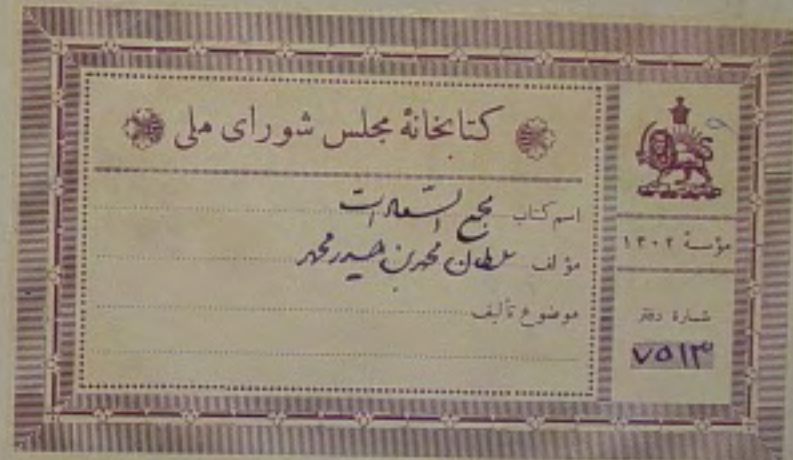 کتابخانهٔ مجلس شورای ملی
اسم کتاب مجمع السّعادات
مؤلف سلطان محمد بن حیدر محمد
موضوع تألیف
مؤسسهٔ ۱۳۰۲
شمارهٔ دفتر
۷۵۱۳